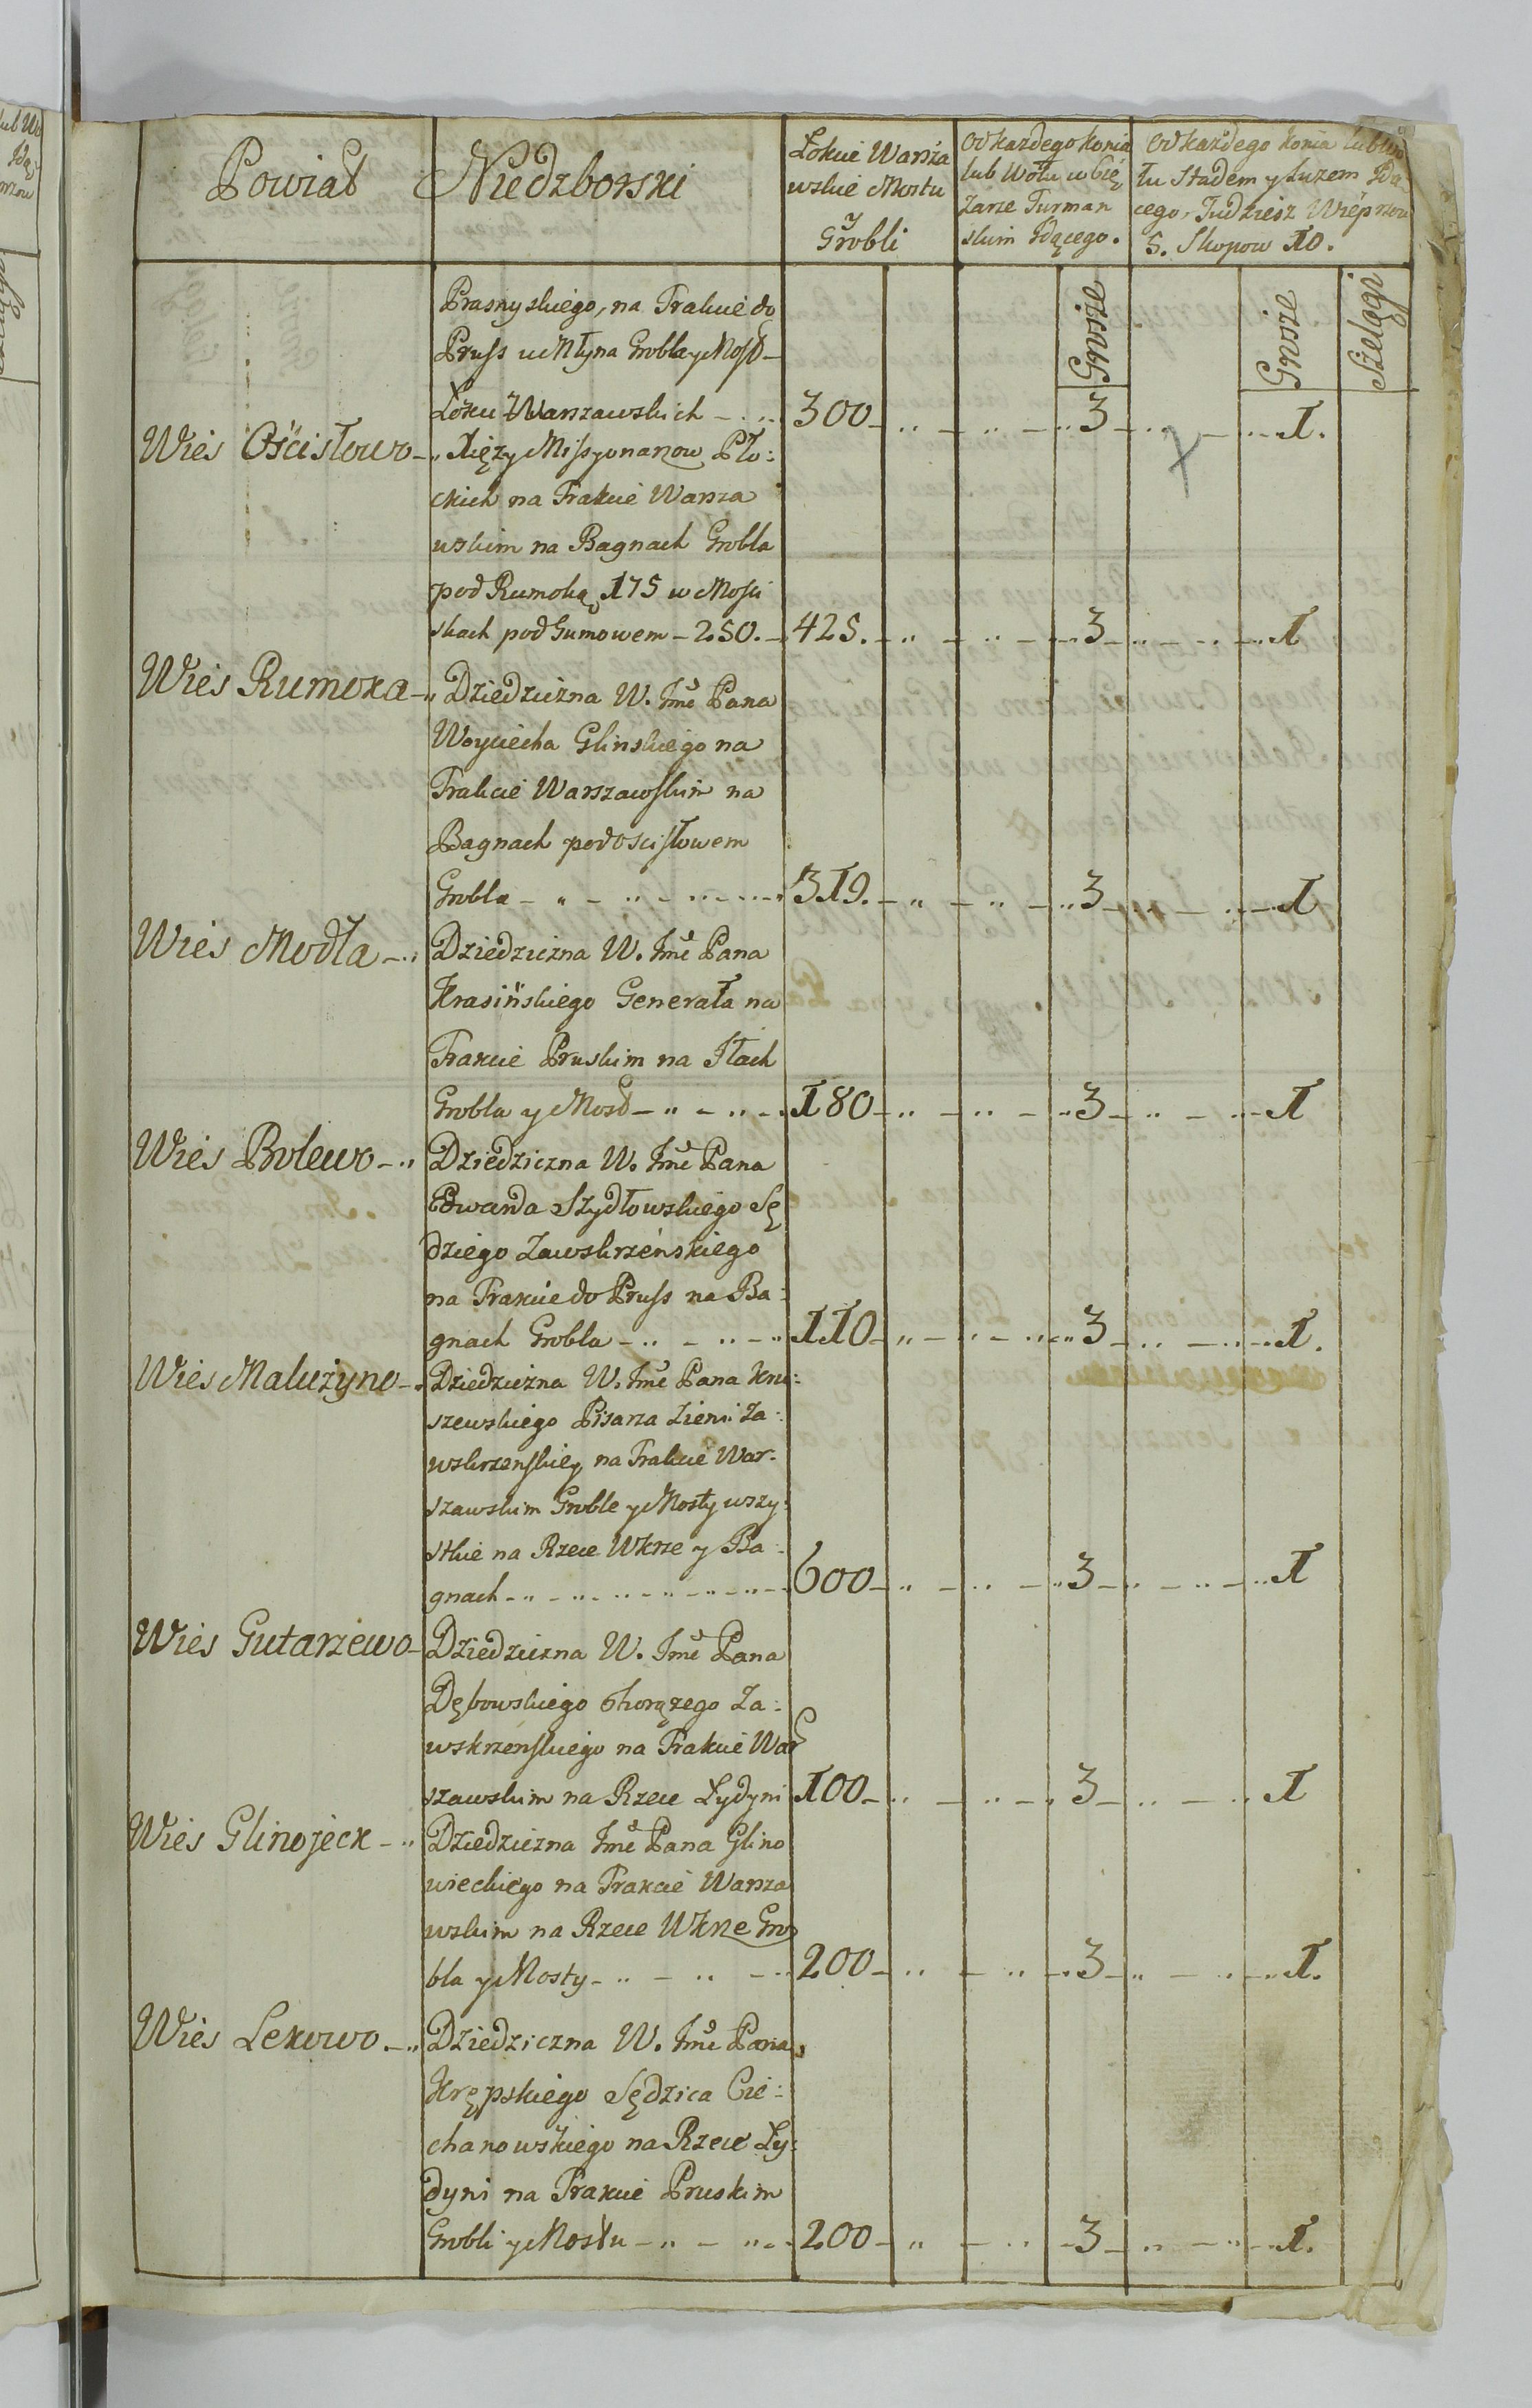 Powiat Niedzborski
Łokcie Warsza
wskie Mostu
y
Grobli
Od każdego konia
lub Wołu w Cię
żarze Furman
skim Idącego.
Od każdego konia lub Wo
łu Stadem y Luzem Idą
cego, Tudziesz Wieprzow
5. Skopow 10.
Grosze
Grosze
Szelągi
Prasnyskiego, na Trakcie do
Pruss u Młyna Grobla y Most
Łokci Warszawskich 300 3 1.
Wieś Ościsłowo Xięży Missyonarzow Pło:
ckich na Trakcie Warsza
wskim na Bagnach Grobla
pod Rumoką 175 w Mosci
skach pod Gumowem - 250. 425. 3 1
Wieś Rumoka Dziedziczna W. Jmć Pana
Woyciecha Glinskiego na
Trakcie Warszawskim na
Bagnach pod Oscisłowem
Grobla 319. 3 1
Wieś Modła Dziedziczna W. Jmć Pana
Krasińskiego Generała na
Trakcie Pruskim na Iłach
Grobla y Most 180 3 1
Wieś Bolewo Dziedziczna W. Jmć Pana
Edwarda Szydłowskiego Sę
dziego Zawskrzeńskiego
na Trakcie do Pruss na Ba:
gnach Grobla 110 3 1.
Wieś Malużyno Dziedziczna W. Jmć Pana Kru:
szewskiego Pisarza Ziemi Za:
wskrzenskiey na Trakcie War:
szawskim Groble y Mosty wszy:
stkie na Rzece Wkrze y Ba:
gnach 600 3 1
Wieś Gutarzewo Dziedziczna W. Jmć Pana
Dębowskiego Chorążego Za:
wskrzenskiego na Trakcie War
szawskim na Rzece Łydyni 100 3 1
Wieś Glinojeck Dziedziczna Jmć Pana Glino
wieckiego na Trakcie Warsza
wskim na Rzece Wkrze Gro
bla y Mosty 200 3 1.
Wieś Lekowo Dziedziczna W. Jmć Pana
Krępskiego Sędzica Cie:
chanowskiego na Rzece Ły:
dyni na Trakcie Pruskim
Grobli y Mostu 200 3 1.